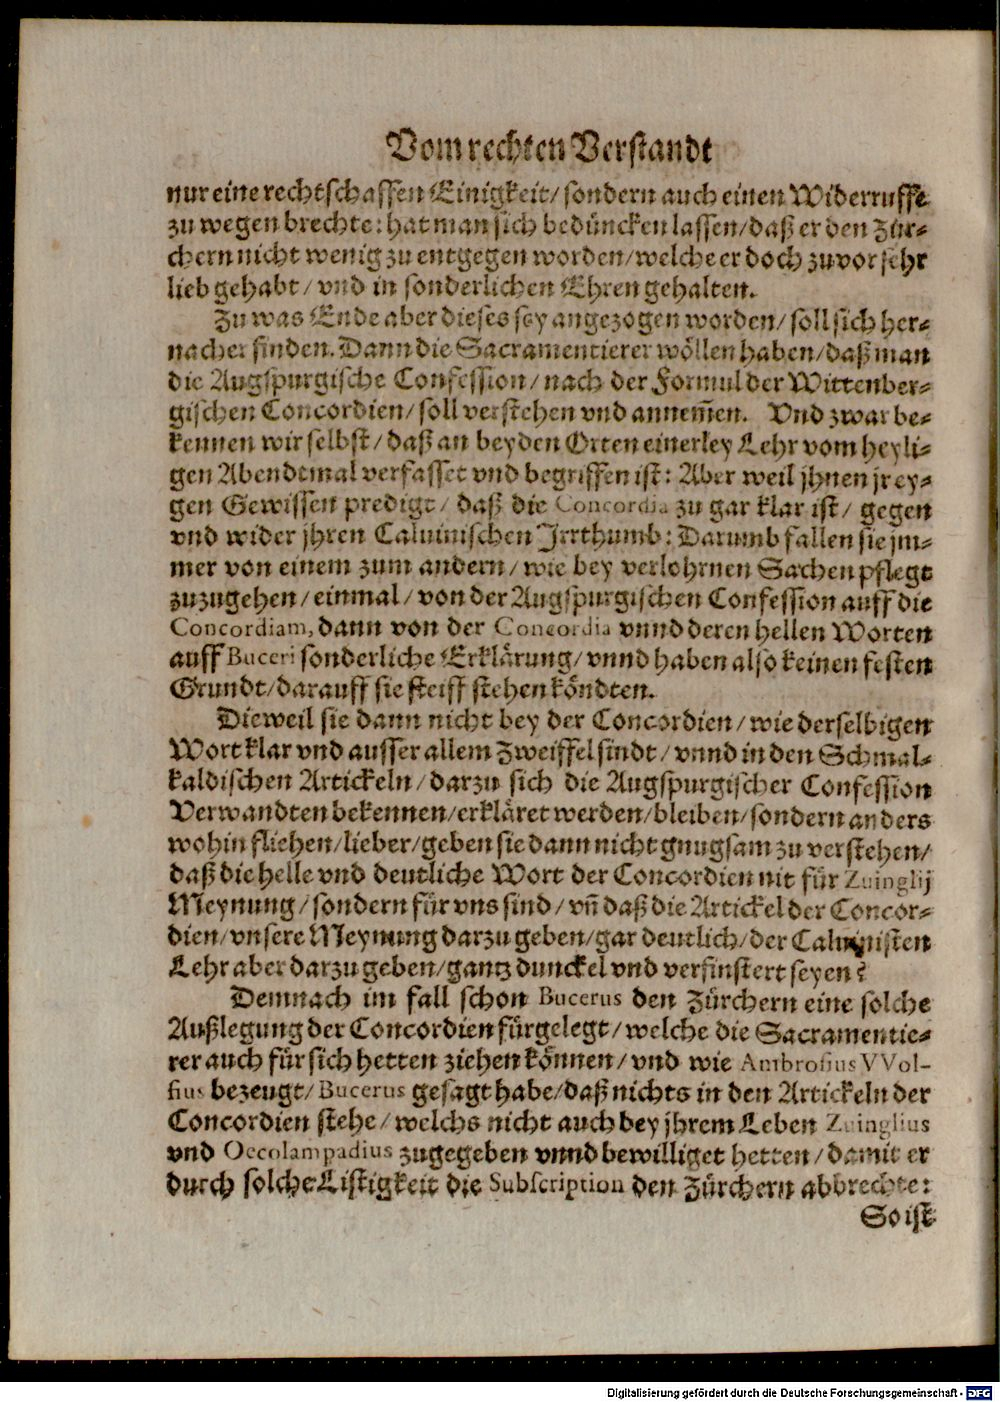 Vom rechten Verstandt
nur eine rechtschaffen Einigkeit/ sondern auch einen Widerruffe
zu wegen brechte: hat man sich beduͤncken lassen/ daß er den Zuͤr-
chern nicht wenig zu entgegen worden/ welche er doch zuvor sehr
lieb gehabt/ vnd in sonderlichen Ehren gehalten.
Zu was Ende aber dieses sey angezogen worden/ soll sich her-
nacher finden. Dann die Sacramentierer woͤllen haben/ daß man
die Augspurgische Confession/ nach der Formul der Wittenber-
gischen Concordien/ soll verstehen vnd annem̃en. Vnd zwar be-
kennen wir selbst/ daß an beyden Orten einerley Lehr vom heyli-
gen Abendtmal verfasset vnd begriffen ist: Aber weil jhnen jr ey-
gen Gewissen predigt/ daß die Concordia zu gar klar ist/ gegen
vnd wider jhren Caluinischen Irrthumb: Darumb fallen sie jm-
mer von einem zum andern/ wie bey verlohrnen Sachen pflegt
zuzugehen/ einmal/ von der Augspurgischen Confession auff die
Concordiam, dann von der Concordia vnnd deren hellen Worten
auff Buceri sonderliche Erklaͤrung/ vnnd haben also keinen festen
Grundt/ darauff sie steiff stehen koͤndten.
Dieweil sie dann nicht bey der Concordien/ wie derselbigen
Wort klar vnd ausser allem Zweiffel sindt/ vnnd in den Schmal-
kaldischen Artickeln/ darzu sich die Augspurgischer Confession
Verwandten bekennen/ erklaͤret werden/ bleiben/ sondern anders
wohin fliehen/ lieber/ geben sie dann nicht gnugsam zu verstehen/
daß die helle vnd deutliche Wort der Concordien nit fuͤr Zuinglij
Meynung/ sondern fuͤr vns sind/ vñ daß die Artickel der Concor-
dien/ vnsere Meynung darzu geben/ gar deutlich/ der Caluinisten
Lehr aber darzu geben/ gantz dunckel vnd verfinstert seyen?
Demnach im fall schon Bucerus den Zuͤrchern eine solche
Außlegung der Concordien fuͤrgelegt/ welche die Sacramentie-
rer auch fuͤr sich hetten ziehen koͤnnen/ vnd wie Ambrosius VVol-
fius bezeugt/ Bucerus gesagt habe/ daß nichts in den Artickeln der
Concordien stehe/ welchs nicht auch bey jhrem Leben Zuinglius
vnd Oecolampadius zugegeben vnnd bewilliget hetten/ damit er
durch solche Listigkeit die Subscription den Zuͤrchern abbrechte:
So ist
Digitalisierung gefördert durch die Deutsche Forschungsgemeinschaft - DFG